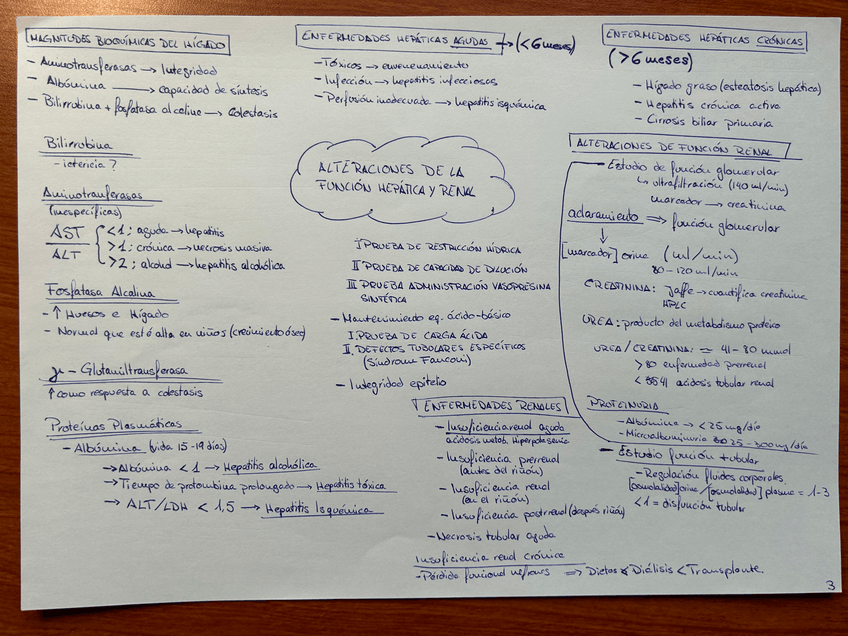 MAGNITUDES BIOQUÍMICAS DEL HÍGADO
- Aminotransferasas → Integridad
- Albúmina → capacidad de síntesis
- Bilirrubina + fosfatasa alcalina → Colestasis
Bilirrubina
- ictericia ?
Aminotranferasas
(inespecíficas)
AST/ALT
<1 ; aguda → hepatitis
>1 ; crónica → necrosis masiva
>2 ; alcohol → hepatitis alcohólica
Fosfatasa Alcalina
- ↑ Huesos e Hígado
- Normal que esté alta en niños (crecimiento óseo)
γ - Glutamiltransferasa
↑ como respuesta a colestasis
Proteínas Plasmáticas
- Albúmina (vida 15-19 días)
→ Albúmina < 1 → Hepatitis alcohólica
→ Tiempo de protombina prolongado → Hepatitis tóxica
→ ALT/LDH < 1,5 → Hepatitis Isquémica
ENFERMEDADES HEPÁTICAS AGUDAS → (<6 meses)
- Tóxicos → envenenamiento
- Infección → hepatitis infecciosas
- Perfusión inadecuada → hepatitis isquémica
ALTERACIONES DE LA
FUNCIÓN HEPÁTICA Y RENAL
I PRUEBA DE RESTRICCIÓN HÍDRICA
II PRUEBA DE CAPACIDAD DE DILUCIÓN
III PRUEBA ADMINISTRACIÓN VASOPRESINA
SINTÉTICA
- Mantenimiento eq. ácido-básico
I. PRUEBA DE CARGA ÁCIDA
II. DEFECTOS TUBULARES ESPECÍFICOS
(Síndrome Fanconi)
- Integridad epitelio
ENFERMEDADES RENALES
- Insuficiencia renal aguda
acidosis metab. Hiperpotasemia
- Insuficiencia prerrenal
(antes del riñón)
- Insuficiencia renal
(en el riñón)
- Insuficiencia postrrenal (después riñón)
- Necrosis tubular aguda
Insuficiencia renal crónica
- Pérdida funcional nefronas ⇒ Dietas < Diálisis < Transplante.
ENFERMEDADES HEPÁTICAS CRÓNICAS
(>6 meses)
- Hígado graso (esteatosis hepática)
- Hepatitis crónica activa
- Cirrosis biliar primaria
ALTERACIONES DE FUNCIÓN RENAL
- Estudio de función glomerular
↳ ultrafiltración (140 ml/min)
marcador → creatinina
aclaramiento ⇒ función glomerular
↓
[marcador] orina (ml/min)
80-120 ml/min
CREATININA: Jaffe → cuantifica creatinina
HPLC
UREA: producto del metabolismo proteico
UREA/CREATININA: = 41-80 mmol
> 80 enfermedad prerrenal
< 41 acidosis tubular renal
PROTEINURIA
- Albúmina → <25 mg/día
- Microalbuminuria 25-300 mg/día
- Estudio función tubular
- Regulación fluidos corporales.
[osmolalidad] orina / [osmolalidad] plasma = 1-3
<1 = disfunción tubular
3